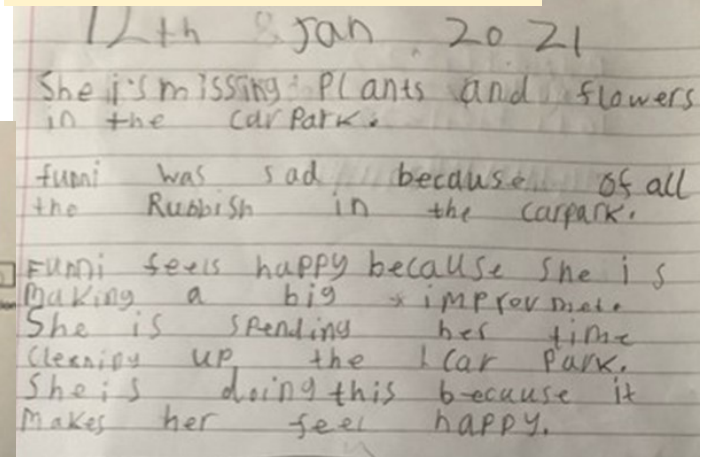 12th Jan 2021
She is missing plants and flowers
in the car Park.
funni was sad because of all
the Rubbish in the carpark.
Funni feels happy because she is
Making a big improvmete
She is spending her time
Clearnipy up the car Park.
She is doing this because it
Makes her feel happy.